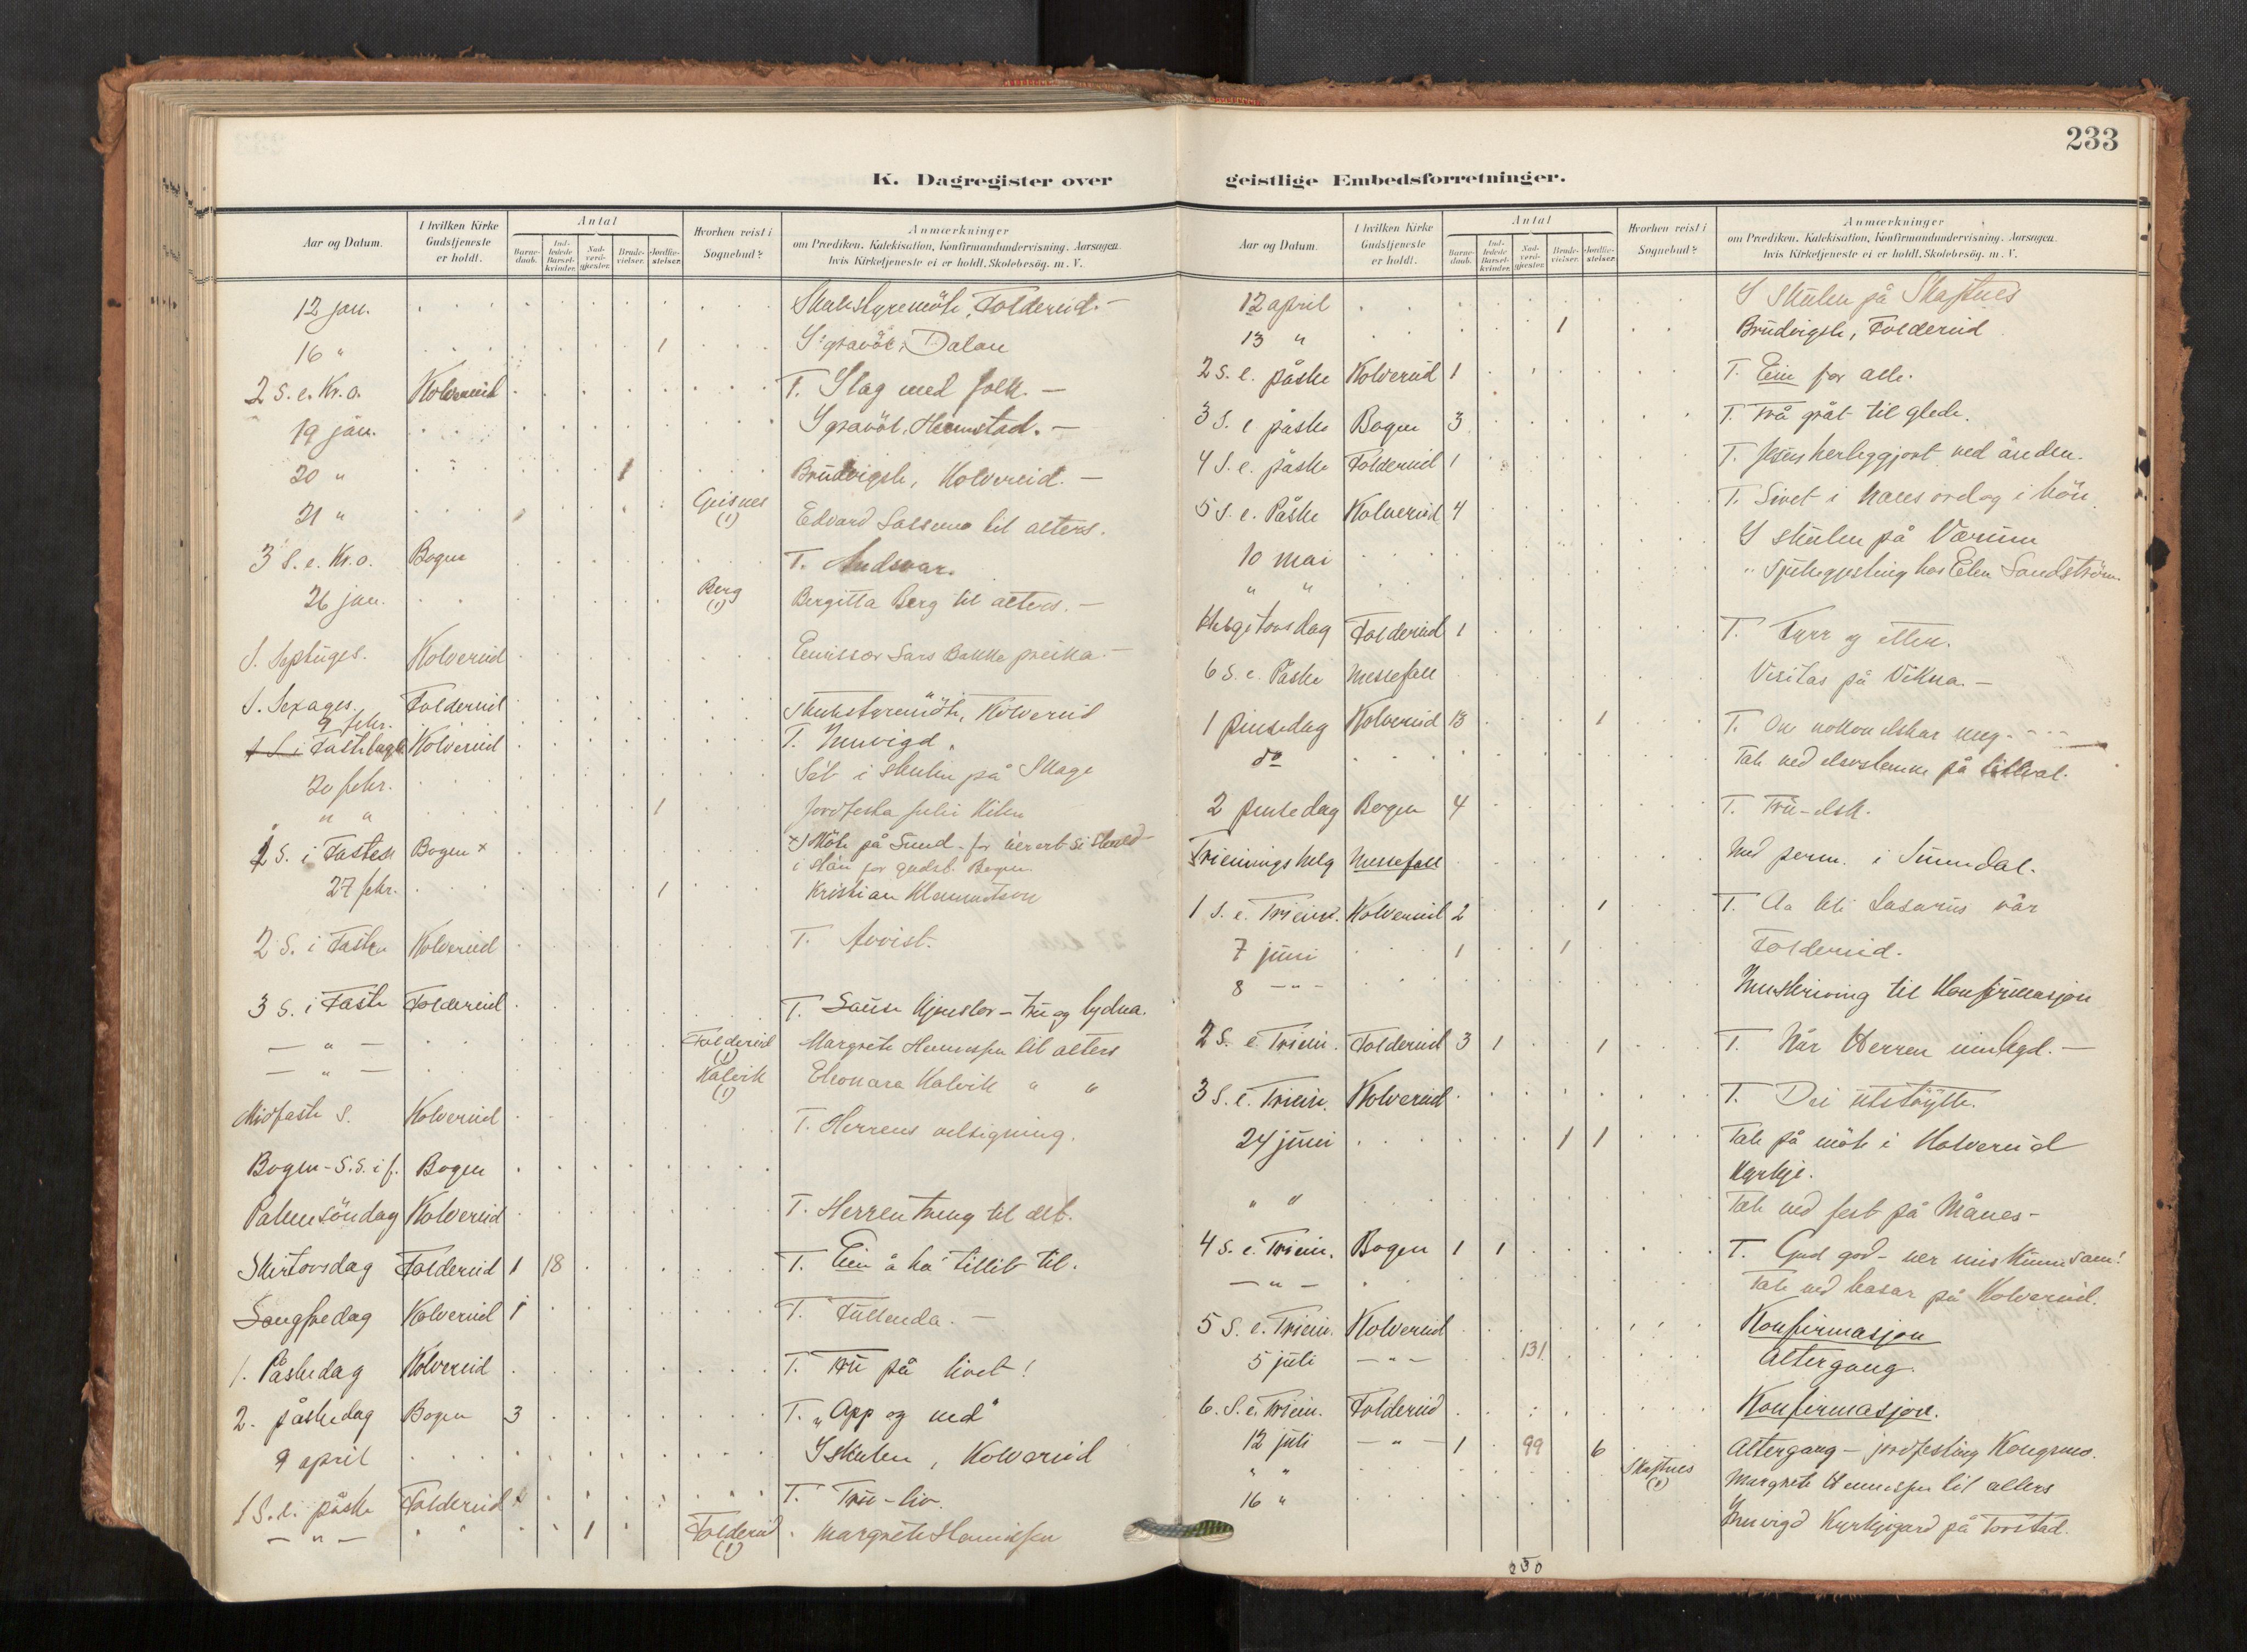 233
K. Dagregister over
geistlige Embedsforretninger.
Aar og Datum.
I hvilken Kirke Gudstjeneste er holdt.
Antal
Barne-daab.
Ind-ledede Barsel-kvinder.
Nad-verd-gjester.
Brude-vielser.
Jordfæ-stelser.
Hvorhen reist i Sognebud?
Anmærkninger
om Prædiken. Katekisation, Konfirmandundervisning. Aarsagen.
hvis Kirketjeneste ei er holdt. Skolebesøg. m. V.
12 jan. Skulestyremöte, Foldereid. -
16 " 1 I gravöl, Dalan
2 S. e. Kr. o. Kolvereid T. I lag med folk. -
19 jan. I gravöl, Heimstad. -
20 " 1 Brudvigsle, Kolvereid. -
21 " Geisnes (1) Edvard til alters.
3 S. e. Kr. o. Bogen T. Andsvar.
26 jan. Berg (1) Bergitta Berg til alters. -
S. Septuges. Kolvereid Emissær Lars Bakke preika -
S. Sexages. Foldereid
9 febr. Skulestyremöte, Kolvereid
Fastelagsh. Kolvereid T. Innvigd.
20 febr. i skulen på
" " 1 Jordfesta
1 S. i Fasten Bogen + + Möte på Sund - for
i stan for gudst. Bogen.
27 febr. 1 Kristian
2 S. i Fasten Kolvereid T. Avvist.
3 S. i Faste Foldereid T. - tru og lydna.
- " - Foldereid (1) Margrete til alters
- " - Kalvik (1) Eleonara Kalvik " "
Midfaste S. Kolvereid T. Herrens velsigning.
Bogen - 5. S. i f. Bogen
Palmesöndag Kolvereid T. Herren treng til det.
Skirtorsdag Foldereid 1 18 T. Ein å ha tillit til.
Langfredag Kolvereid 1 T. Fullenda. -
1. Påskedag Kolvereid T. Tru på livet!
2. påskedag Bogen 3 T. "Opp og ned"
9 april I skulen, Kolvereid
1 S. e. påske Foldereid T. Tru - liv.
- " - 1 Foldereid (1) Margrete
Aar og Datum.
I hvilken Kirke Gudstjeneste er holdt.
Antal
Barne-daab.
Ind-ledede Barsel-kvinder.
Nad-verd-gjester.
Brude-vielser.
Jordfæ-stelser.
Hvorhen reist i Sognebud?
Anmærkninger
om Prædiken. Katekisation, Konfirmandundervisning. Aarsagen.
hvis Kirketjeneste ei er holdt. Skolebesøg. m. V.
12 april I skulen på Skaftnes
13 " 1 Brudvigsle, Foldereid
2 S. e. påske Kolvereid 1 T. Ein for alle.
3 S. e påske Bogen 3 T. Frå gråt til glede.
4 S. e. påske Foldereid 1 T. Jesus herleggjort ved ånden.
5 S. e. Påske Kolvereid 4 T. Livet i hans ord og i bön
10 mai I skulen på Værum
" " " hos Elen Sandström.
Helgetorsdag Foldereid 1 T. Fyrr og etter.
6 S. e. Påske Messefall Visitas på Vikna. -
1 pinsedag Kolvereid 13 1 T. Om nokon elskar meg - - -
do Tale ved på
2 pinsedag Bogen 4 T. Tru - elsk.
Trieiningshelg Messefall Med perm. i Sunndal.
1 S. e. Triein. Kolvereid 2 1 T. Lasarus vår
7 juni 1 1 Foldereid.
8 - " - Innskriving til Konfirmasjon
2 S. e. Triein. Foldereid 3 1 1 T. Når Herren -
3 S. e. Triein. Kolvereid T. Dei utstöytte.
24 juni 1 1 Tale på möte i Kolvereid
Kyrkje.
" " Tale ved fest på Månes -
4 S. e. Triein. Bogen 1 1 T. Gud god - ver miskunnsam!
- " - Tale ved basar på Kolvereid.
5 S. e. Triein. Kolvereid Konfirmasjon
5 juli - " - 131 Altergang.
6. S. e. Triein. Foldereid Konfirmasjon.
12 juli - " - 1 99 6 Altergang - jordfesting Kongsmo.
" " Skaftnes (1) Margrete til alters
16 " Innvigd Kyrkjegard på Torstad.
230